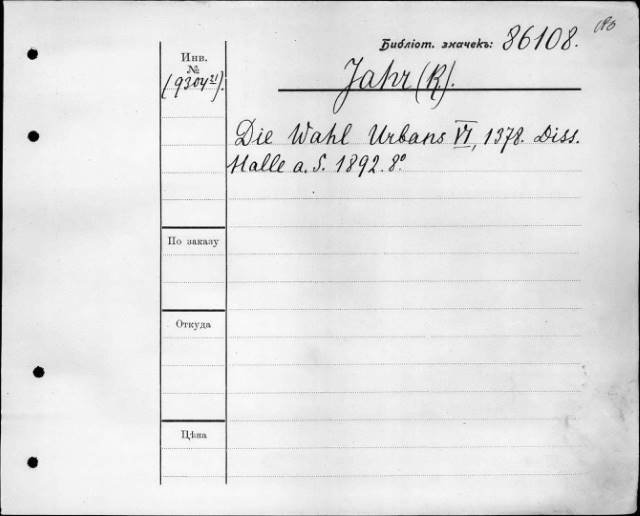 Библiот. значекъ: 86108.
Инв.
№
(9304²¹).
Jahr (R).
Die Wahl Urbans VI, 1378. Diss.
Halle a. S. 1892. 8°
По заказу
Откуда
Цѣна